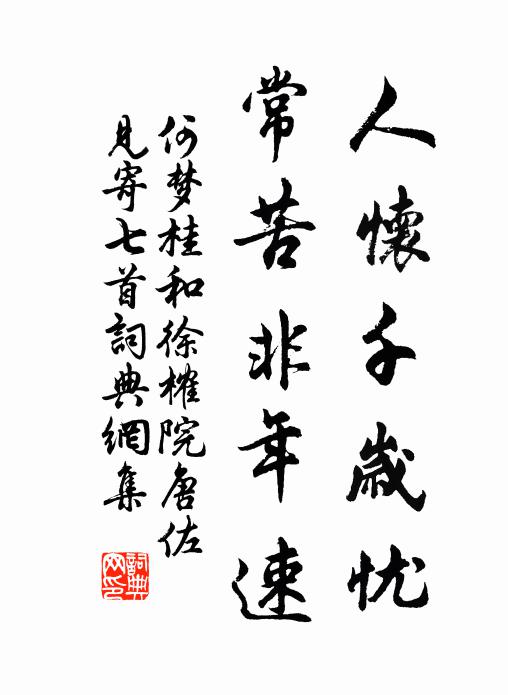 人懷千歲忧
常苦非年速
何梦桂和徐榷院唐佐
見寄七首詞典網集
詞典網印